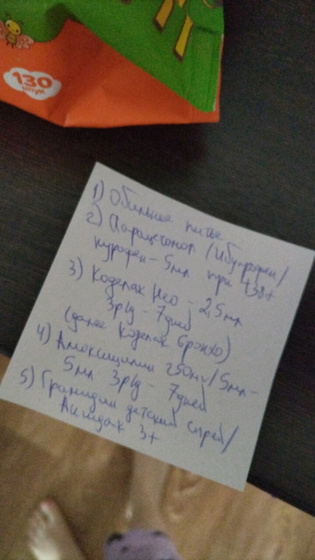 130
штук
1) Обильное питье
2) Парацетамол/Ибупрофен/
нурофен - 5мл при t38+
3) Коделак Нео - 2,5мл
3р/д - 7дней
(далее Коделак бронхо)
4) Амоксициллин 250мг/5мл -
5мл 3р/д - 7дней
5) Граммидин детский спрей/
3+